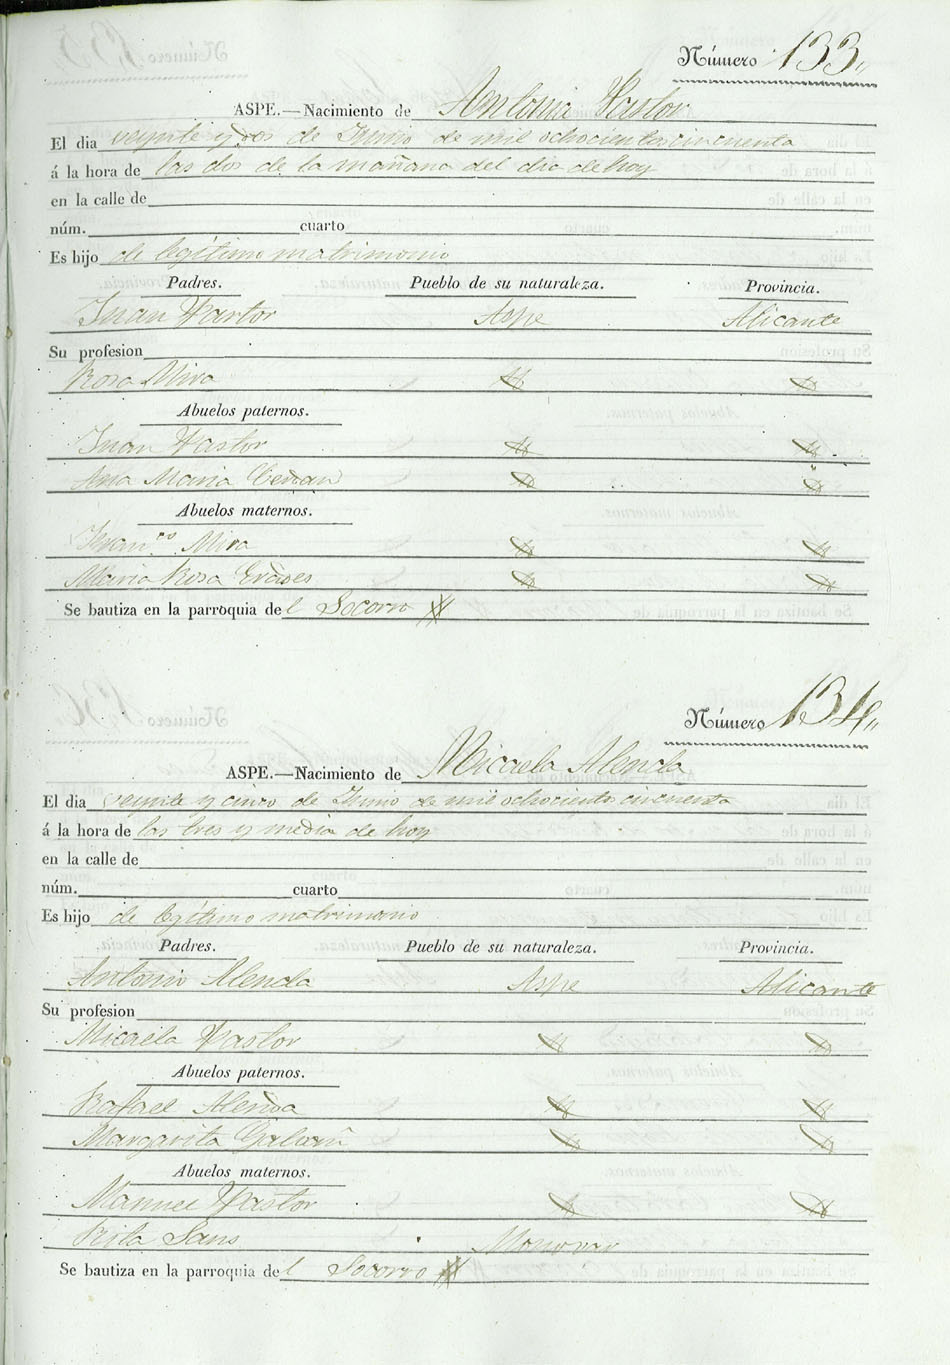 Número 133,,
ASPE.—Nacimiento de Antonia Pastor
El dia veynte y dos de Junio de mil ochocientos cincuenta
á la hora de las dos de la mañana del dia de hoy
en la calle de
núm. cuarto
Es hijo de legítimo matrimonio
Padres. Pueblo de su naturaleza. Provincia.
Juan Pastor Aspe Alicante
Su profesion
Rosa Mira
Abuelos paternos.
Juan Pastor
Ana Maria
Abuelos maternos.
Franco Mira
Maria Rosa
Se bautiza en la parroquia del Socorro
Número 134,,
ASPE.—Nacimiento de Micaela Alenda
El dia veynte y cinco de Junio de mil ochociento cincuenta
á la hora de las tres y media de hoy
en la calle de
núm. cuarto
Es hijo de legítimo matrimonio
Padres. Pueblo de su naturaleza. Provincia.
Antonio Alenda Aspe Alicante
Su profesion
Micaela Pastor
Abuelos paternos.
Rafael Alenda
Margarita Galvañ
Abuelos maternos.
Manuel Pastor
Rita Sans Monovar
Se bautiza en la parroquia del Socorro